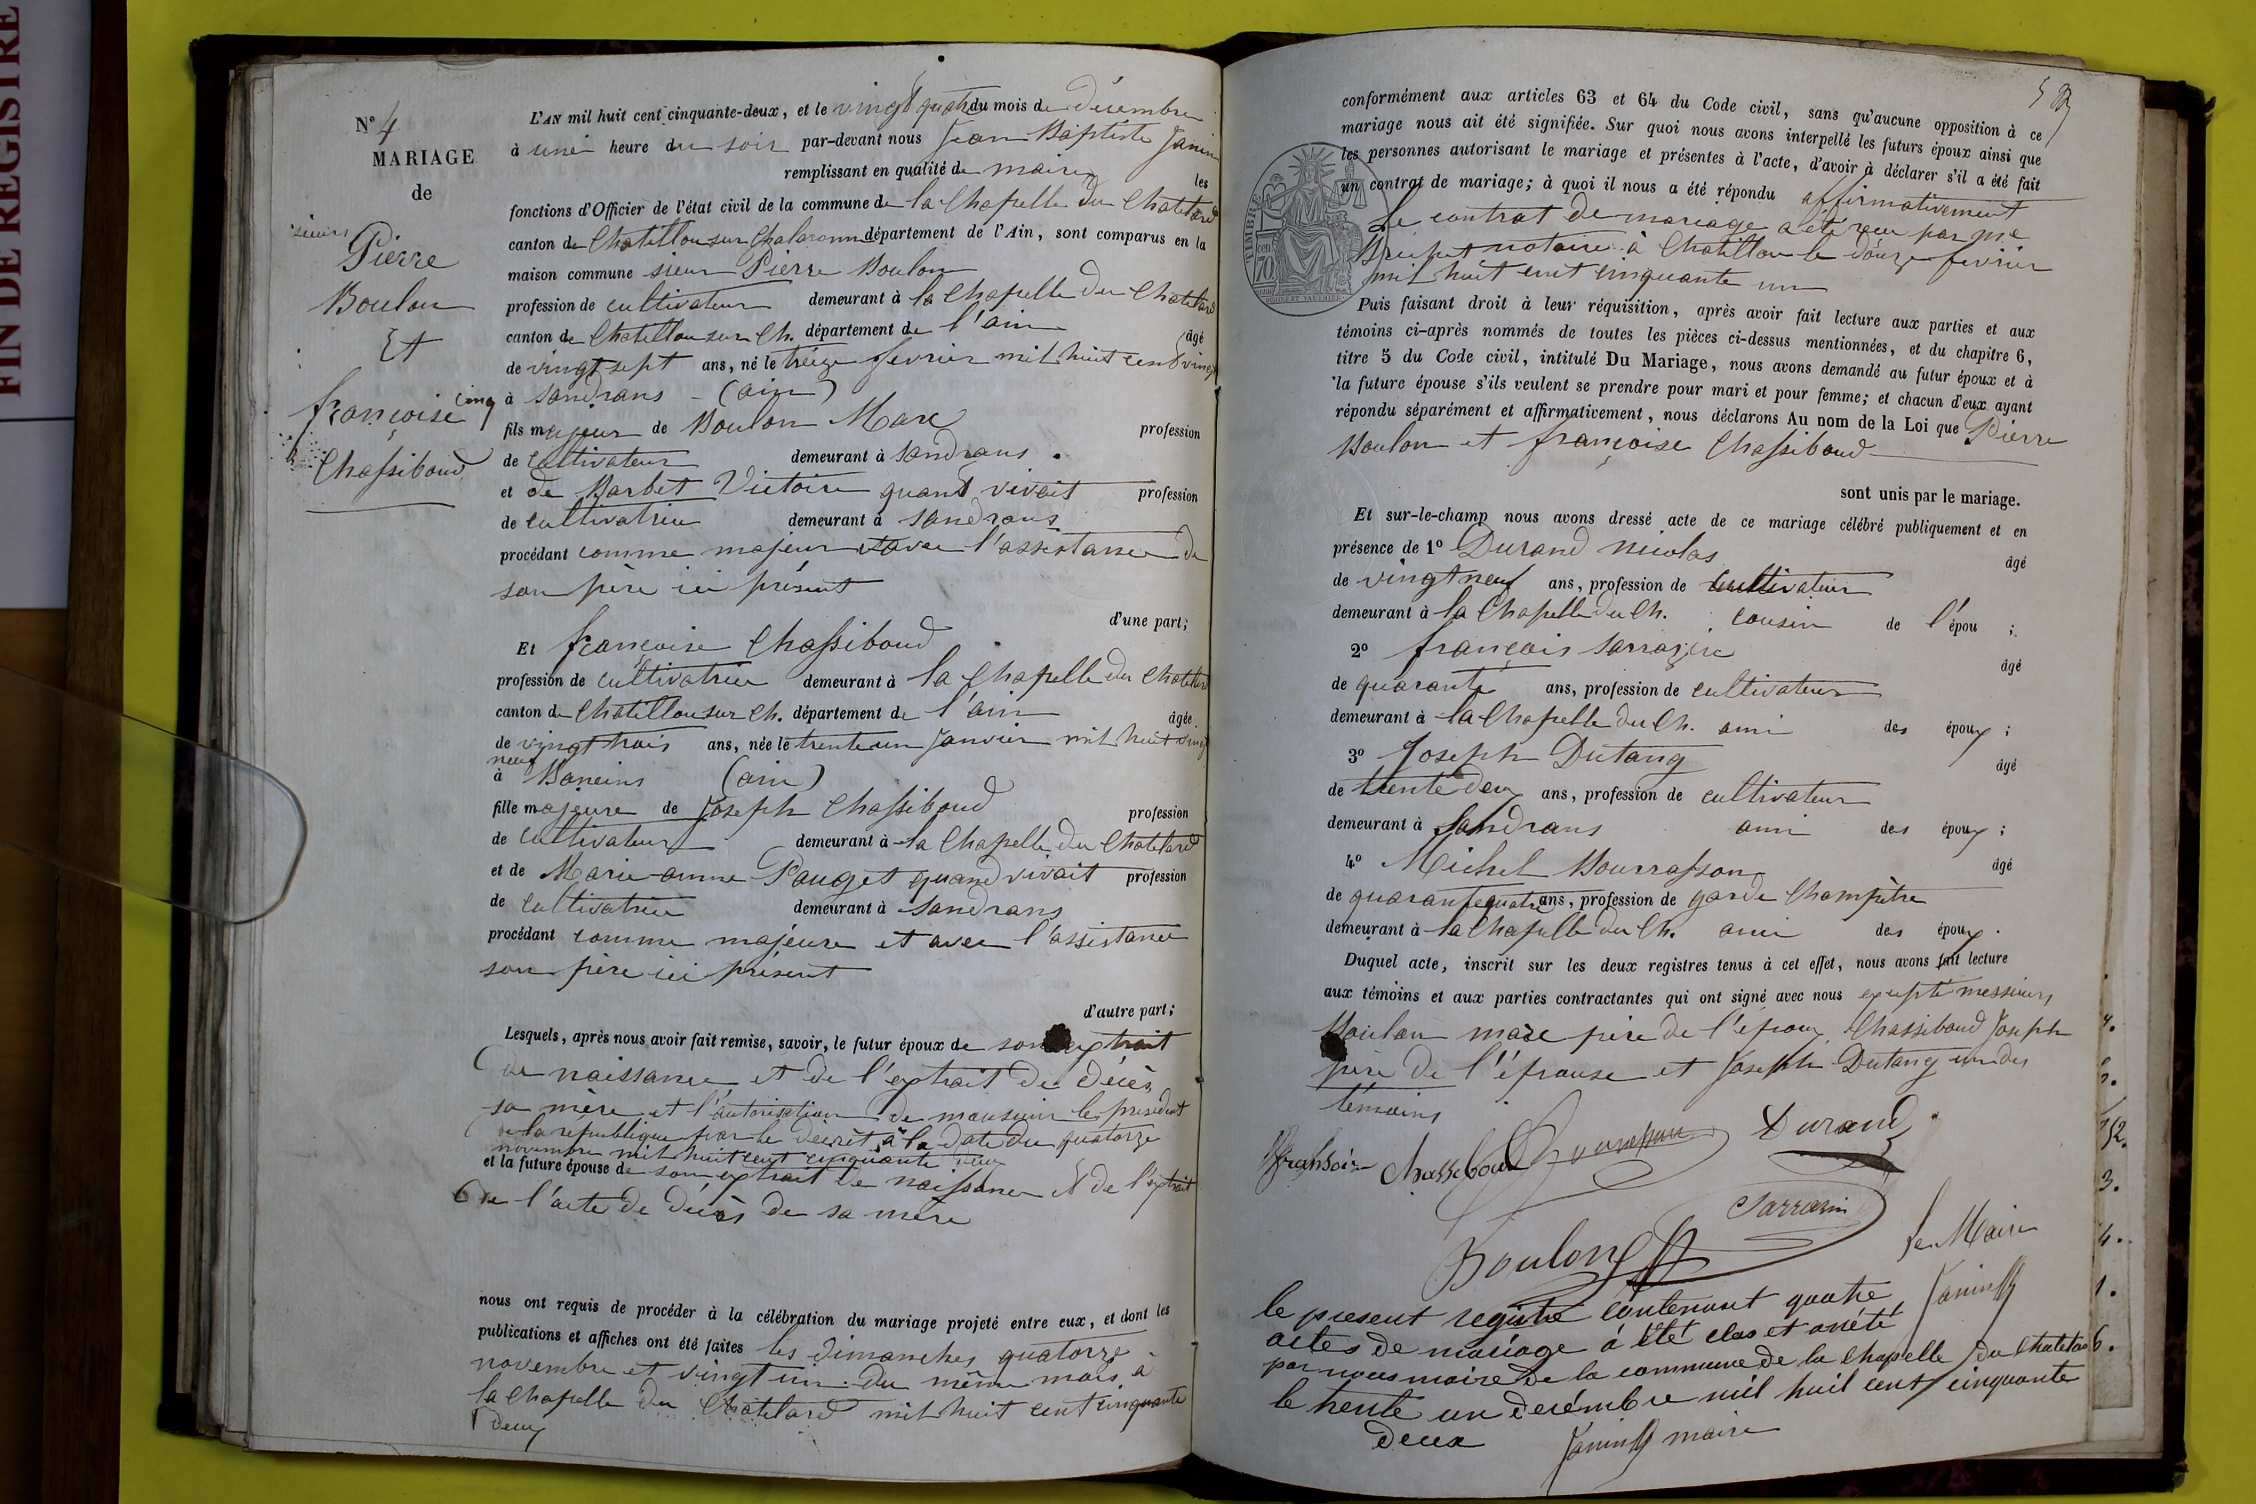 FIN DE REGISTRE
N° 4
MARIAGE
de
sieur
Pierre
Boulon
Et
françoise
Chassiboud
L'AN mil huit cent cinquante-deux, et le vingt quatre du mois de Décembre
à une heure du soir par-devant nous Jean Baptiste Janin
remplissant en qualité de maire les
fonctions d'Officier de l'état civil de la commune de la Chapelle du Chatelard
canton de Chatillon sur Chalaronne département de l'Ain, sont comparus en la
maison commune sieur Pierre Boulon
profession de cultivateur demeurant à la Chapelle du Chatelard
canton de Chatillon sur Ch. département de l'ain âgé
de vingt sept ans, né le treize fevrier mil huit cent vingt
cinq à Sandrans (ain)
fils majeur de Boulon Marc profession
de cultivateur demeurant à Sandrans
et de Barbet Victoire quand vivait profession
de cultivatrice demeurant à Sandrans
procédant comme majeur et avec l'assistance de
son père ici présent
d'une part;
Et françoise Chassiboud
profession de cultivatrice demeurant à la Chapelle du Chatelard
canton de Chatillon sur Ch. département de l'ain âgée
de vingt trois ans, née le trente un Janvier mil huit vingt
neuf
à Baneins (ain)
fille majeure de Joseph Chassiboud profession
de cultivateur demeurant à la Chapelle du Chatelard
et de Marie-anne Pauget quand vivait profession
de cultivatrice demeurant à Sandrans
procédant comme majeure et avec l'assistance
son père ici présent
d'autre part;
Lesquels, après nous avoir fait remise, savoir, le futur époux de son extrait
de naissance et de l'extrait de décès
sa mère et l'autorisation de monsieur le président
de la république par le décrèt à la date du quatorze
novembre mil huit cent cinquante deux
et la future épouse de son extrait de naissance et de l'extrait
de l'acte de décès de sa mère
nous ont requis de procéder à la célébration du mariage projeté entre eux, et dont les
publications et affiches ont été faites les dimanches quatorze
novembre et vingt un du même mois à
la Chapelle du Chatelard mil huit cent cinquante
deux
conformément aux articles 63 et 64 du Code civil, sans qu'aucune opposition à ce
mariage nous ait été signifiée. Sur quoi nous avons interpellé les futurs époux ainsi que
les personnes autorisant le mariage et présentes à l'acte, d'avoir à déclarer s'il a été fait
un contrat de mariage; à quoi il nous a été répondu affirmativement
Le contrat de mariage a été reçu par me
notaire à Chatillon le douze fevrier
mil huit cent cinquante un
TIMBRE
70
Puis faisant droit à leur réquisition, après avoir fait lecture aux parties et aux
témoins ci-après nommés de toutes les pièces ci-dessus mentionnées, et du chapitre 6,
titre 5 du Code civil, intitulé Du Mariage, nous avons demandé au futur époux et à
la future épouse s'ils veulent se prendre pour mari et pour femme; et chacun d'eux ayant
répondu séparément et affirmativement, nous déclarons Au nom de la Loi que Pierre
Boulon et françoise Chassiboud
sont unis par le mariage.
Et sur-le-champ nous avons dressé acte de ce mariage célébré publiquement et en
présence de 1° Durand nicolas âgé
de vingt neuf ans, profession de cultivateur
demeurant à la Chapelle du Ch. cousin de l'épou ;
2° françois Sarrazin âgé
de quarante ans, profession de cultivateur
demeurant à la Chapelle du Ch. ami des époux ;
3° Joseph Dutang âgé
de trente deux ans, profession de cultivateur
demeurant à Sandrans ami des époux ;
4° Michel Bourrasson âgé
de quarante quatre ans, profession de garde Champêtre
demeurant à la Chapelle du Ch. ami des époux .
Duquel acte, inscrit sur les deux registres tenus à cet effet, nous avons fait lecture
aux témoins et aux parties contractantes qui ont signé avec nous excepté messieurs
Boulon marc père de l'époux Chassiboud Joseph
père de l'épouse et Joseph Dutang un des
témoins
Chassiboud Durand
Sarrasin
Boulon
Le Maire
Janin
le present registre contenant quatre
actes de mariage à été clos et arrété
par nous maire de la commune de la Chapelle du Chatelard
le trente un decembre mil huit cent cinquante
deux Janin maire